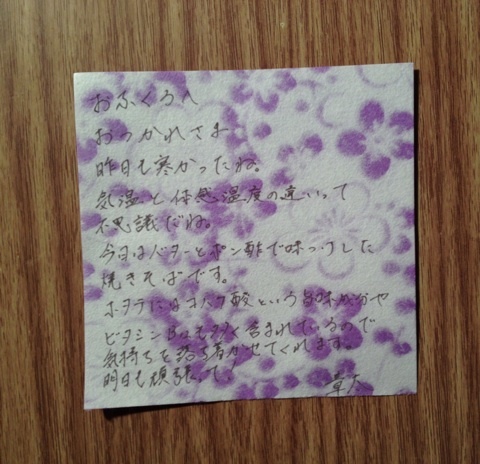 おふくろへ
おつかれさま
昨日も寒かったね。
気温と体感温度の違いって
不思議だね。
今日はバターとポン酢で味つけした
焼きそばです。
ホタテにはコハク酸という旨味成分や
ビタミンB12も多く含まれているので
気持ちを落ち着かせてくれます。
明日も頑張って。